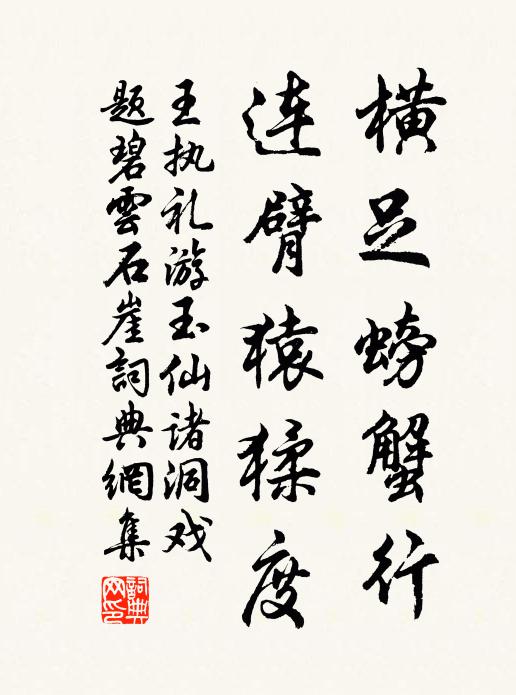 横足螃蟹行
连臂猿猱度
王执礼游玉仙诸洞戏
题碧雲石崖詞典網集
詞典網印